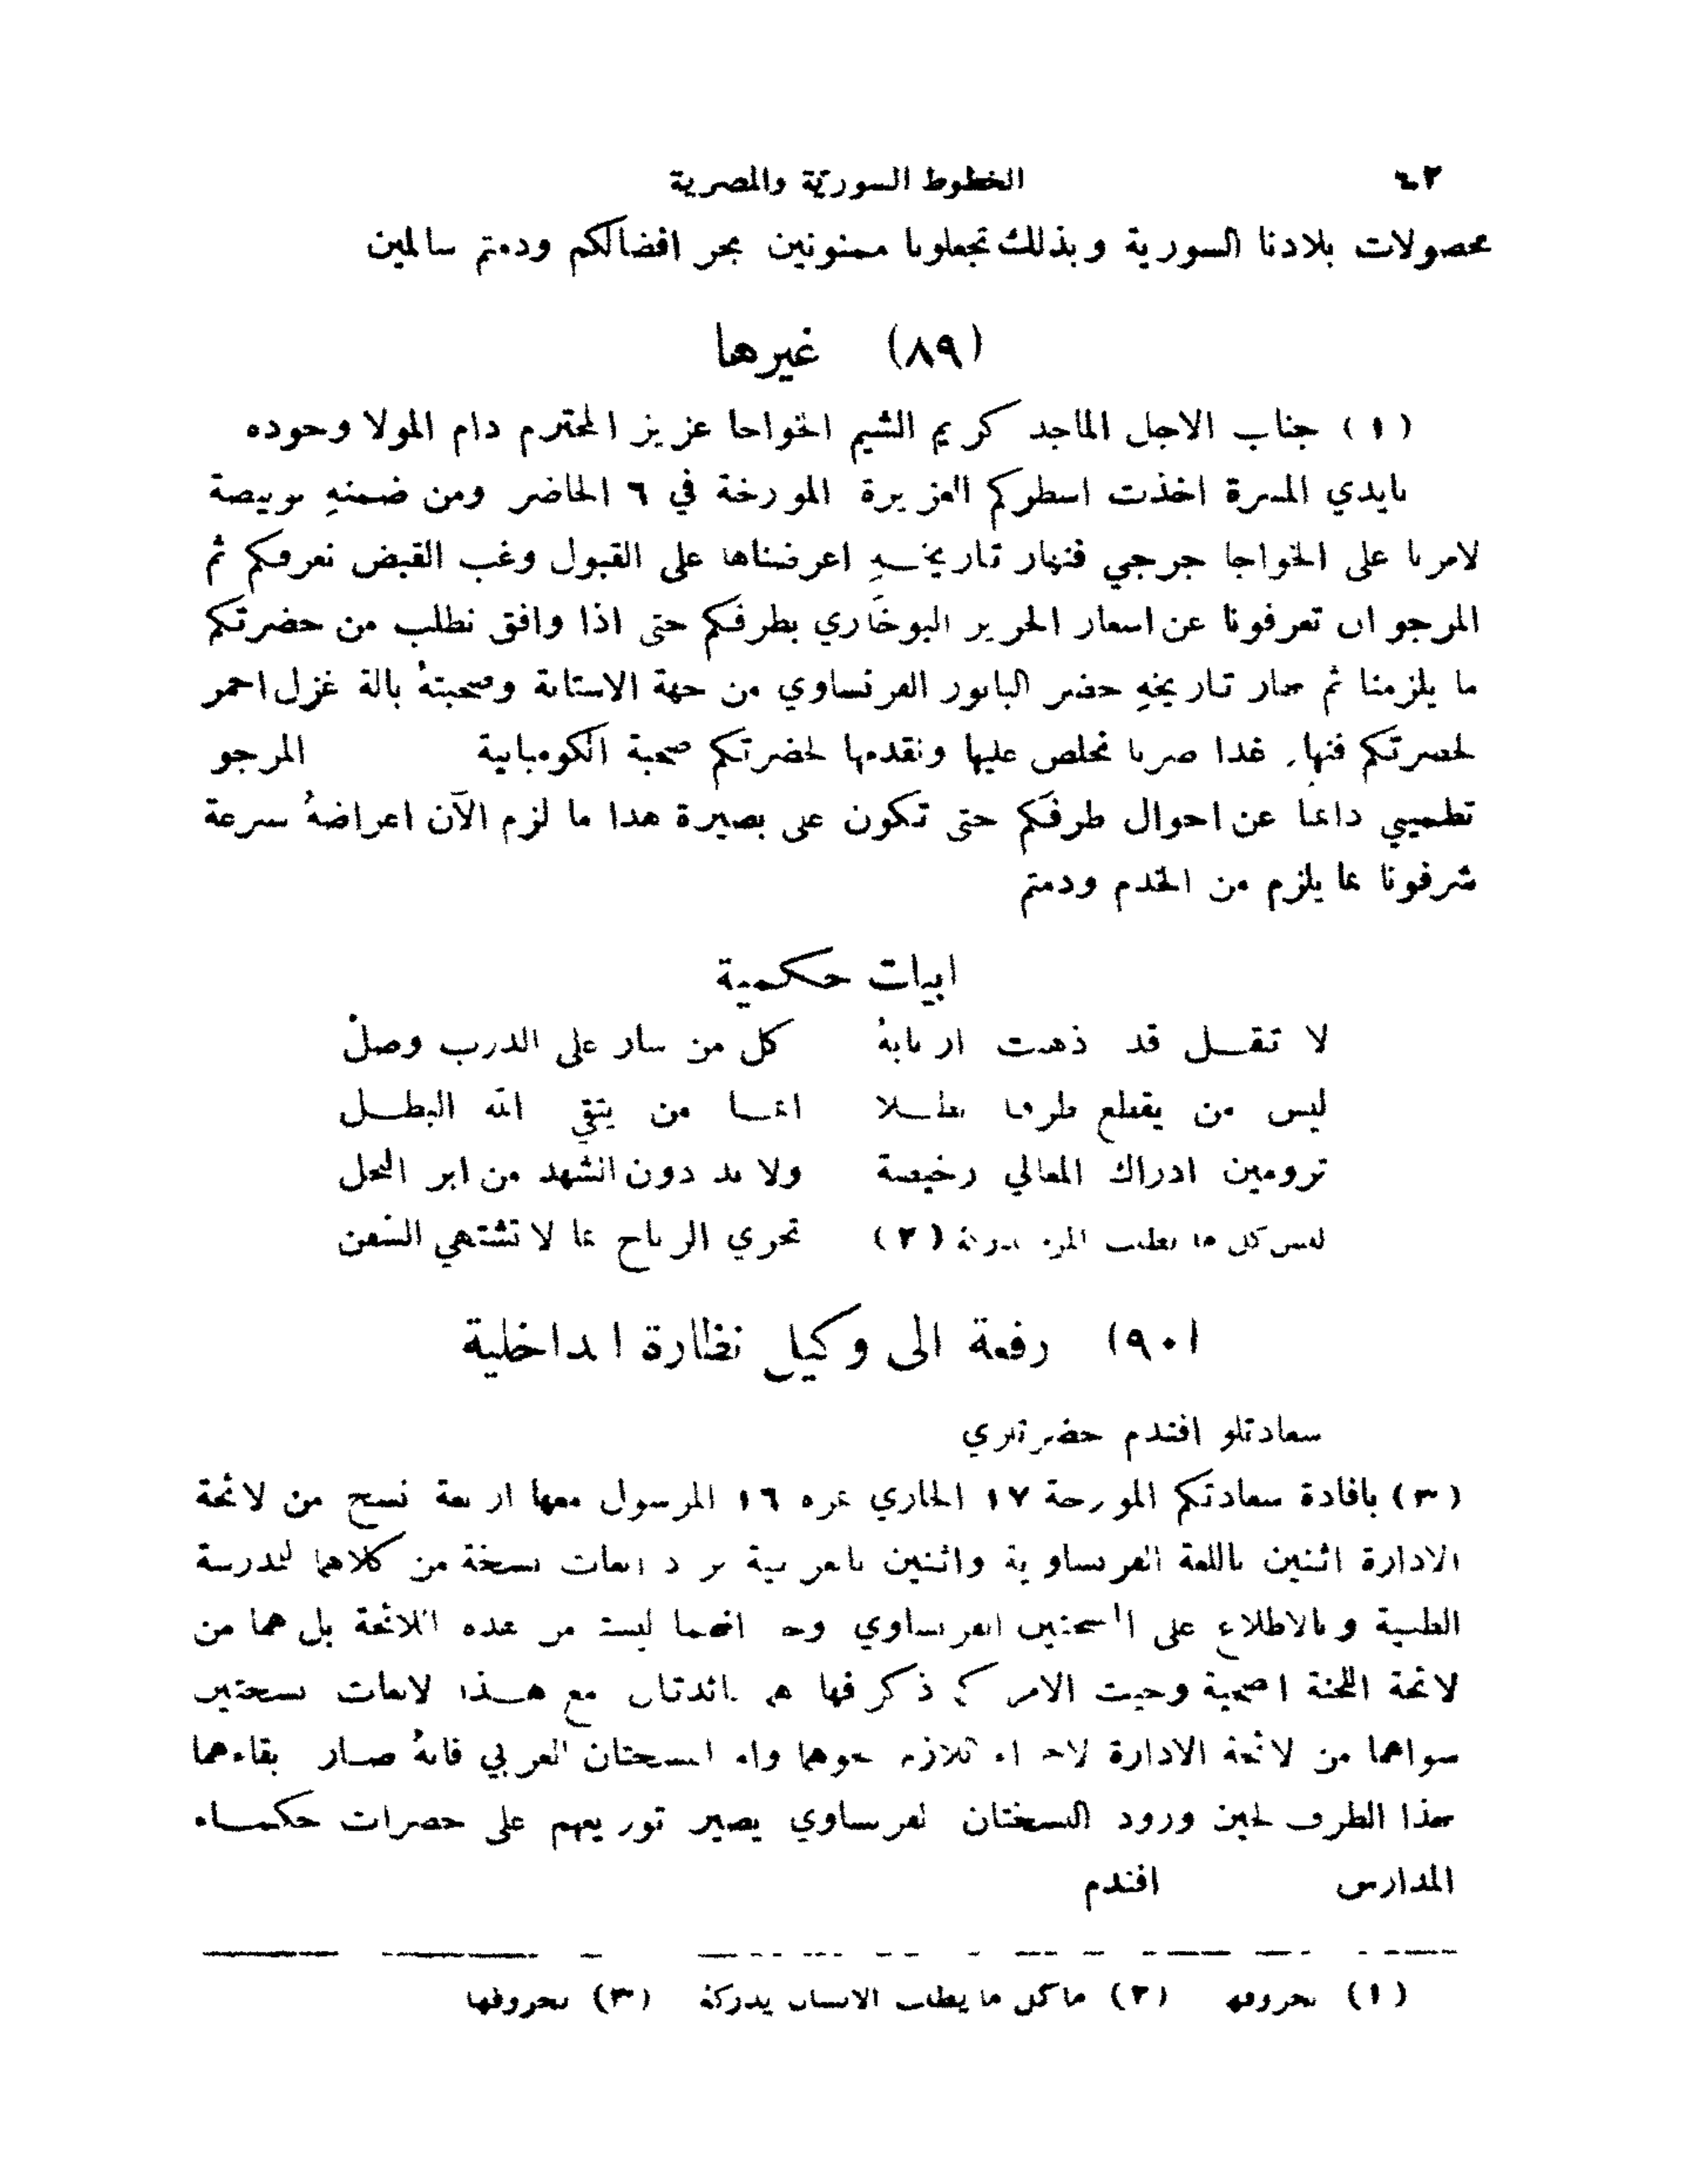 ٤٢ الخطوط السورية والمصرية
محصولات بلادنا السورية وبذلك تجعلونا ممنونين بحر افضالكم ودمتم سالمين
(٨٩) غيرها
(١) جناب الاجل الماجد كريم الشيم الخواجا عزيز المحترم دام المولا وجوده
بايدي المسرة اخذت اسطركم العزيرة المورخة في ٦ الحاضر ومن ضمنهِ بوبيصة
لامرنا على الخواجا جرجي فنهار تاريخـهِ اعرضناها على القبول وغب القبض نعرفكم ثم
المرجو ان تعرفونا عن اسعار الحرير البوخاري بطرفكم حتى اذا وافق نطلب من حضرتكم
ما يلزمنا ثم نهار تاريخهِ حضر البابور الفرنساوي من جهة الاستانة وصحبتهُ بالة غزل احمر
لحضرتكم فنهار غدا صرنا نخلص عليها ونقدمها لحضرتكم صحبة الكومبانية المرجو
تطميني دائما عن احوال طرفكم حتى تكون على بصيرة هذا ما لزم الآن اعراضهُ سرعة
شرفونا بما يلزم من الخدم ودمتم
ابيات حكمية
لا تقـل قد ذهبت اربابهُ كل من سار على الدرب وصلْ
ليس من يقطع طرقا بطـلا انمـا من يتقي الله البطـل
ترومين ادراك المعالي رخيصة ولا بد دون الشهد من ابر النحل
ليس كل ما يطلب المرء يدركهُ (٢) تجري الرياح بما لا تشتهي السفن
(٩٠) رفعة الى وكيل نظارة الداخلية
سعادتلو افندم حضرتلري
(٣) بافادة سعادتكم المورخة ١٧ الجاري نمره ١٦ المرسول معها اربعة نسخ من لائحة
الادارة اثنين باللغة الفرنساوية واثنين بالعربية نسخة من كلاهما لمدرسة
الطبية وبالاطلاع على النسختين الفرنساوي وجد انهما ليست من هذه اللائحة بل هما من
لائحة اللجنة الصحية وحيث الامر كما ذكر فها هم عائدتان مع هـذا لابعات نسختين
سواهما من لائحة الادارة لاجراء اللازم نحوهما واما النسختان العربي فانهُ صـار بقاءهما
بهذا الطرف لحين ورود النسختان الفرنساوي يصير توزيعهم على حضرات حكمـاء
المدارس افندم
(١) بحروفه (٢) ما كل ما يطلب الانسان يدركهُ (٣) بحروفها